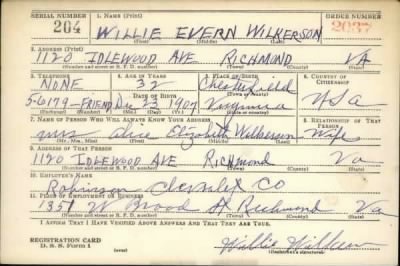 SERIAL NUMBER 1. NAME (Print) ORDER NUMBER
204 WILLIE EVERN WILKERSON 2037
(First) (Middle) (Last)
2. ADDRESS (Print)
1120 IDLEWOOD AVE RICHMOND VA
(Number and street or R. F. D. number) (Town) (County) (State)
3. TELEPHONE 4. AGE IN YEARS 5. PLACE OF BIRTH 6. COUNTRY OF CITIZENSHIP
NONE 32 Chesterfield
(Town or county)
5-6179-FRIEND Dec 23 1907 Virginia USA
7. NAME OF PERSON WHO WILL ALWAYS KNOW YOUR ADDRESS 8. RELATIONSHIP OF THAT PERSON
Mrs Alice Elizabeth Wilkerson Wife
(Mr., Mrs., Miss) (First) (Middle) (Last)
9. ADDRESS OF THAT PERSON
1120 IDLEWOOD AVE RICHMOND Va
(Number and street or R. F. D. number) (Town) (County) (State)
10. EMPLOYER'S NAME
Robinson Chevrolet CO
11. PLACE OF EMPLOYMENT OR BUSINESS
1351 W Broad St Richmond Va
(Number and street or R. F. D. number) (Town) (County) (State)
I AFFIRM THAT I HAVE VERIFIED ABOVE ANSWERS AND THAT THEY ARE TRUE.
REGISTRATION CARD
D. S. S. Form 1 Willie Wilkerson
(Registrant's signature)